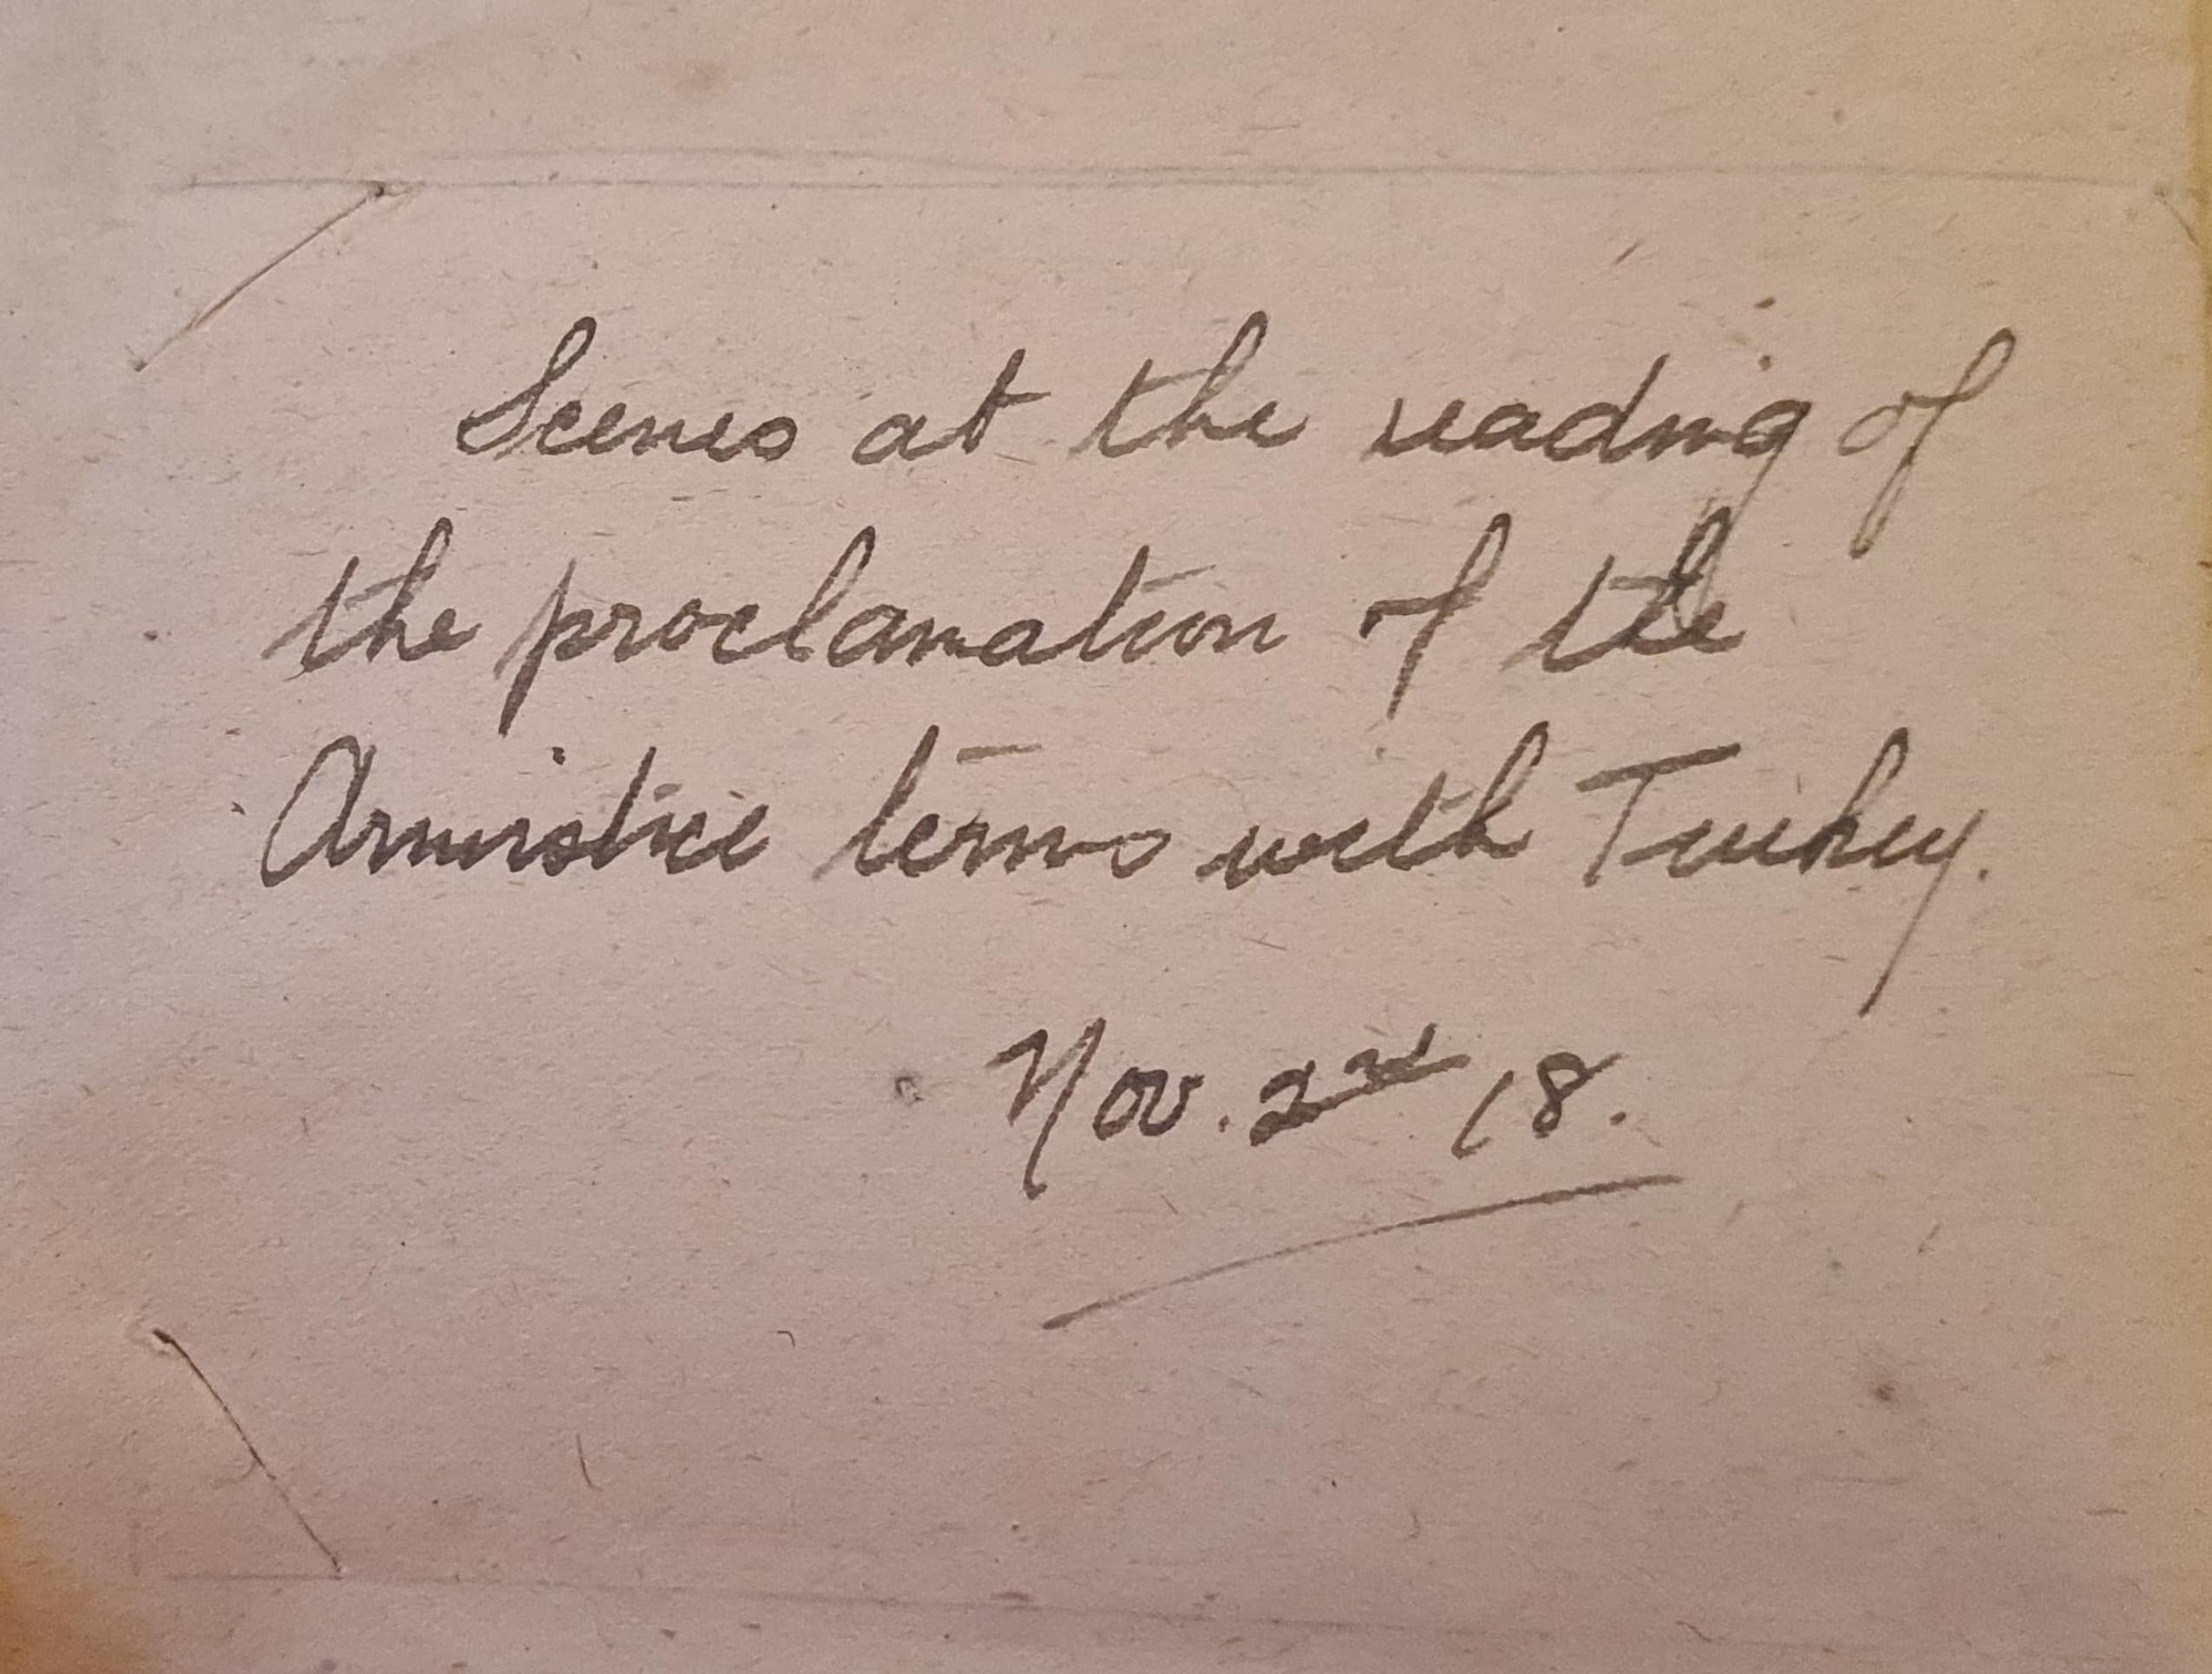 Scenes at the reading of
the proclamation of the
Armistice terms with Turkey.
Nov. 2nd 18.